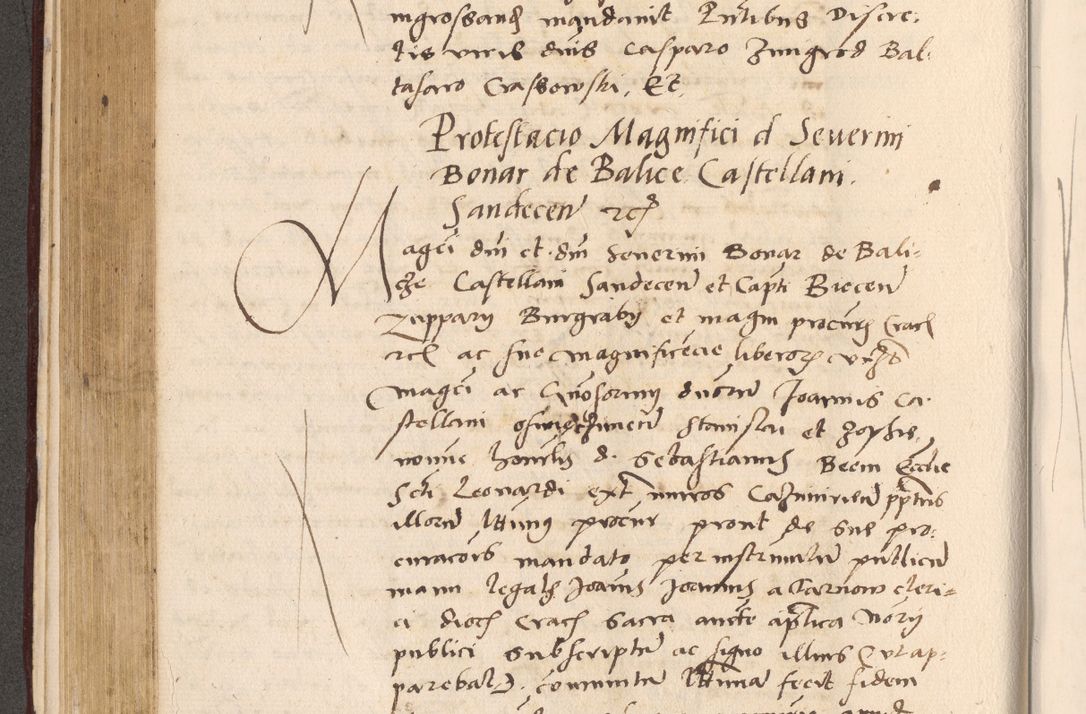 ingrossand mandavit Pntibus Discre-
tis viris dnis Casparo Zmigrod Bal-
tasaro Crassowski, Etc.
Protestacio Magnifici d Severini
Bonar de Balice Castellani
Sandecen rc
Magci dni et dni Severini Bonar de Bali-
che Castellani Sandecen et Capti Biecen
Zupparij Burgrabij et magni procur Crac
rc ac sue magnificecie liberor
magci ac Gnosorum dnorum Joannis Ca-
stellani Stanislai et Zophie
nomine honorlis d. Sebastianus Beem Ecclie
Scti Leonardi ext muros Cazimirien pptus
illorum lttimus procur prout de sue pro-
curacois mandato per instrumtum publicum
manu legalis Joannis Joannis a Tarnow cleri-
ci dioc Crac sacra aucte aplica Norij
publici subscriptum ac signo illius Cut ap-
parebat communitu lttima fecit fidem